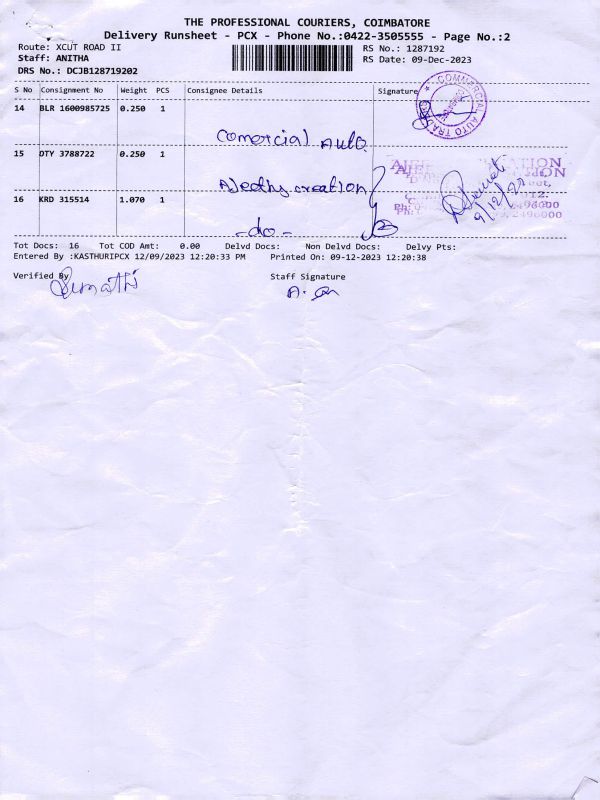 THE PROFESSIONAL COURIERS, COIMBATORE
Delivery Runsheet - PCX - Phone No.:0422-3505555 - Page No.:2
Route: XCUT ROAD II RS No.: 1287192
Staff: ANITHA RS Date: 09-Dec-2023
DRS No.: DCJB128719202
S No Consignment No Weight PCS Consignee Details Signature
14 BLR 1600985725 0.250 1
COMMERCIAL AUTO
Comercial Auto
15 DTY 3788722 0.250 1
creation
16 KRD 315514 1.070 1
9/12/23
2496000
-do-
Tot Docs: 16 Tot COD Amt: 0.00 Delvd Docs: Non Delvd Docs: Delvy Pts:
Entered By :KASTHURIPCX 12/09/2023 12:20:33 PM Printed On: 09-12-2023 12:20:38
Verified By Staff Signature
Sumathi